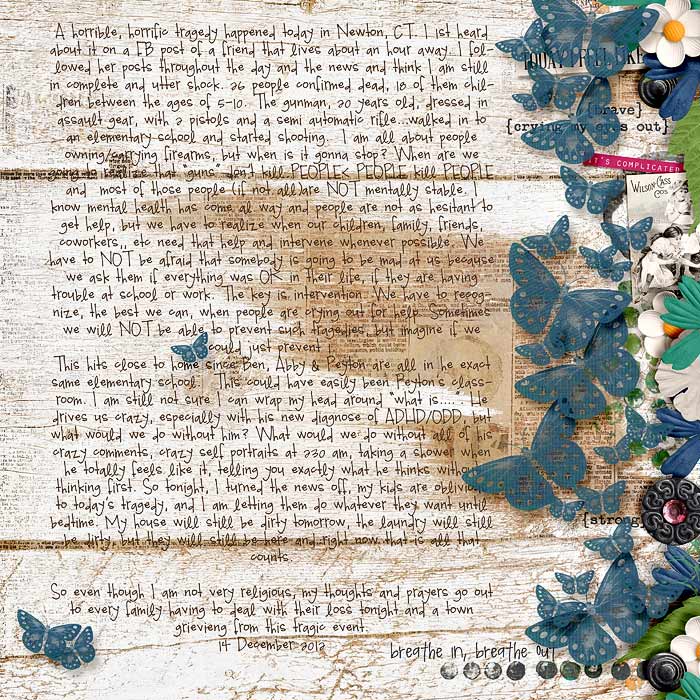 A horrible, horrific tragedy happened today in Newton, CT. I 1st heard
about it on a FB post of a friend that lives about an hour away. I fol-
lowed her posts throughout the day and the news and think I am still
in complete and utter shock. 26 people confirmed dead, 18 of them chil-
dren between the ages of 5-10. The gunman, 20 years old, dressed in
assault gear, with 2 pistols and a semi automatic rifle...walked in to
an elementary school and started shooting. I am all about people
owning/carrying firearms, but when is it gonna stop? When are we
going to realize that "guns" don't kill PEOPLE< PEOPLE kill PEOPLE
and most of those people (if not all)are NOT mentally stable. I
know mental health has come al way and people are not as hesitant to
get help, but we have to realize when our children, family, friends,
coworkers,, etc need that help and intervene whenever possible. We
have to NOT be afraid that somebody is going to be mad at us because
we ask them if everything was OK in their life, if they are having
trouble at school or work. The key is intervention. We have to recog-
nize, the best we can, when people are crying out for help. Sometimes
we will NOT be able to prevent such tragedies, but imagine if we
could just prevent
This hits close to home since Ben, Abby & Peyton are all in he exact
same elementary school. This could have easily been Peyton's class-
room. I am still not sure I can wrap my head around "what is..... He
drives us crazy, especially with his new diagnose of ADHD/ODD, but
what would we do without him? What would we do without all of his
crazy comments, crazy self portraits at 730 am, taking a shower when
he totally feels like it, telling you exactly what he thinks without
thinking first. So tonight, I turned the news off, my kids are oblivious
to today's tragedy, and I am letting them do whatever they want until
bedtime. My house will still be dirty tomorrow, the laundry will still
be dirty, but they will still be here and right now that is all that
counts.
So even though I am not very religious, my thoughts and prayers go out
to every family having to deal with their loss tonight and a town
grievieng from this tragic event.
14 December 2012
breathe in, breathe out
TODAY I FEEL LIKE
{brave}
{crying my eyes out}
IT'S COMPLICATED
WILSON CASS
COS
{strong}